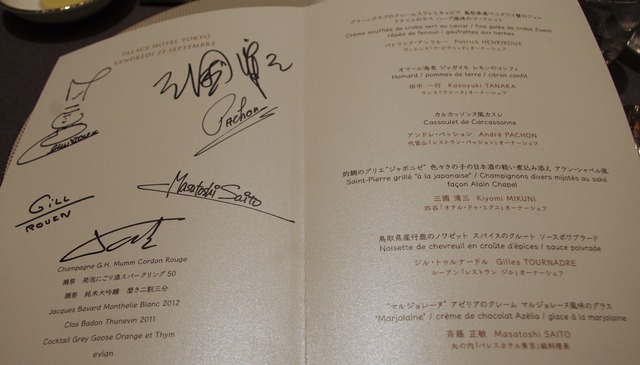 PALACE HOTEL TOKYO
VENDREDI 25 SEPTEMBRE
三國 清三
PACHON
Masatoshi SAITO
GILL
ROUEN
Champagne G.H. Mumm Cordon Rouge
獺祭 発泡にごり酒スパークリング 50
獺祭 純米大吟醸 磨き二割三分
Jacques Bavard Monthelie Blanc 2012
Clos Badon Thunevin 2011
Cocktail Grey Goose Orange et Thym
evian
Crème soufflée de crabe vert au caviar / fine gelée de crabe Zuwai
râpée de fenouil / gaufrettes aux herbes
パトリック・アンリルー Patrick HENRIROUX
オマール海老 ジャガイモ レモンのコンフィ
Homard / pommes de terre / citron confit
田中 一行 Kazuyuki TANAKA
ランス「ラシーヌ」オーナーシェフ
カルカッソンヌ風カスレ
Cassoulet de Carcassonne
アンドレ・パッション André PACHON
代官山「レストラン・パッション」オーナーシェフ
的鯛のグリエ"ジャポニゼ" 色々きの子の日本酒の軽い煮込み添え アラン・シャペル風
Saint-Pierre grillé "à la japonaise" / Champignons divers mijotés au saké
façon Alain Chapel
三國 清三 Kiyomi MIKUNI
四谷「オテル・ドゥ・ミクニ」オーナーシェフ
鳥取県産仔鹿のノワゼット スパイスのクルート ソースポワブラード
Noisette de chevreuil en croûte d'épices / sauce poivrade
ジル・トゥルナードル Gilles TOURNADRE
ルーアン「レストラン ジル」オーナーシェフ
"マルジョレーヌ" アゼリアのクレーム マルジョレーヌ風味のグラス
"Marjolaine" / crème de chocolat Azélia / glace à la marjolaine
斉藤 正敏 Masatoshi SAITO
丸の内「パレスホテル東京」総料理長